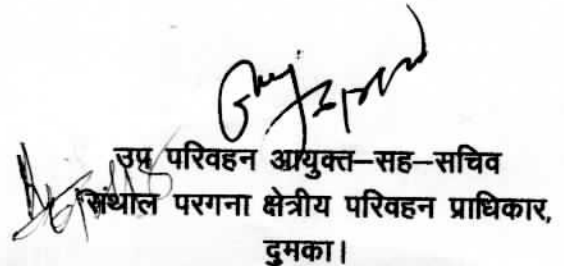 उप परिवहन आयुक्त–सह–सचिव
संथाल परगना क्षेत्रीय परिवहन प्राधिकार,
दुमका।